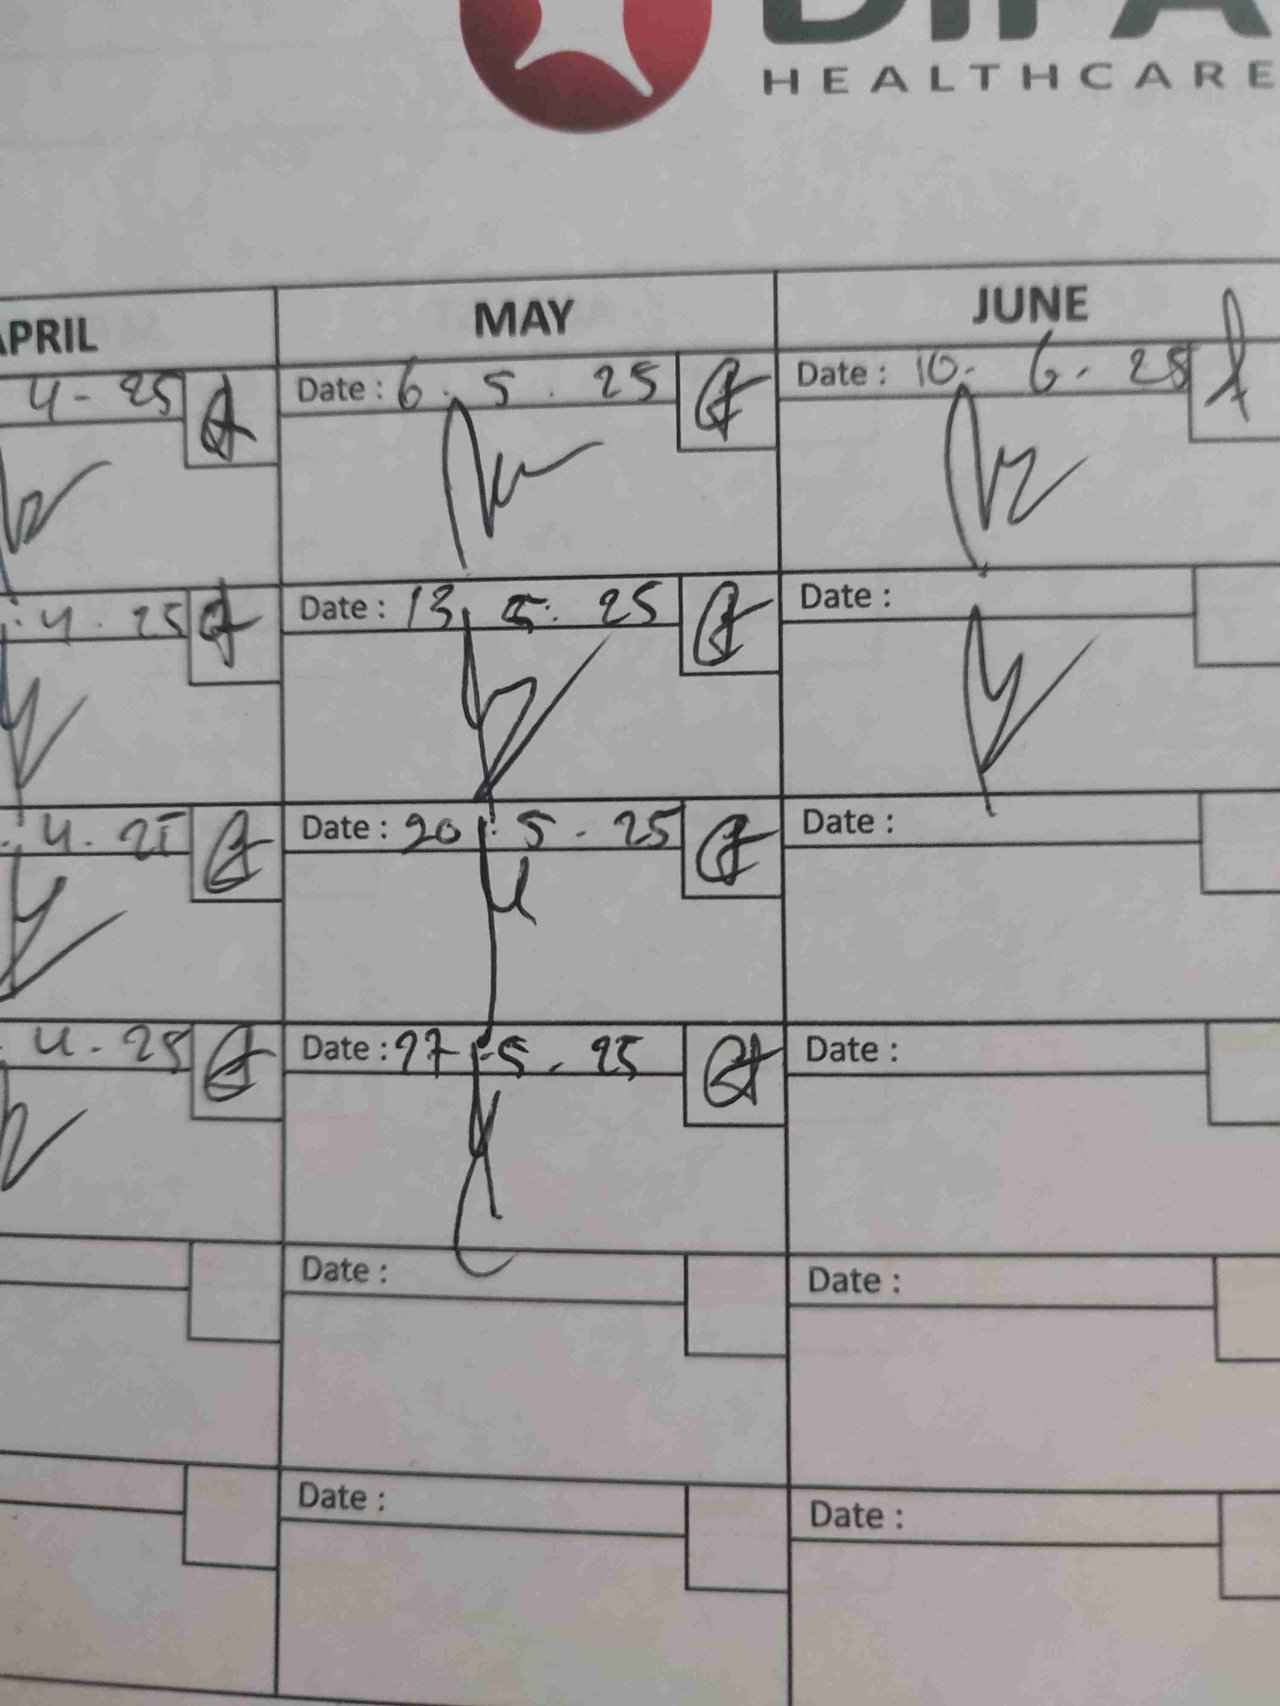 HEALTHCARE
APRIL MAY JUNE
4-25 Date: 6.5.25 Date: 10.6.25
.4.25 Date: 13.5.25 Date:
.4.25 Date: 20.5.25 Date:
.4.25 Date: 27-5.25 Date:
Date: Date:
Date: Date: